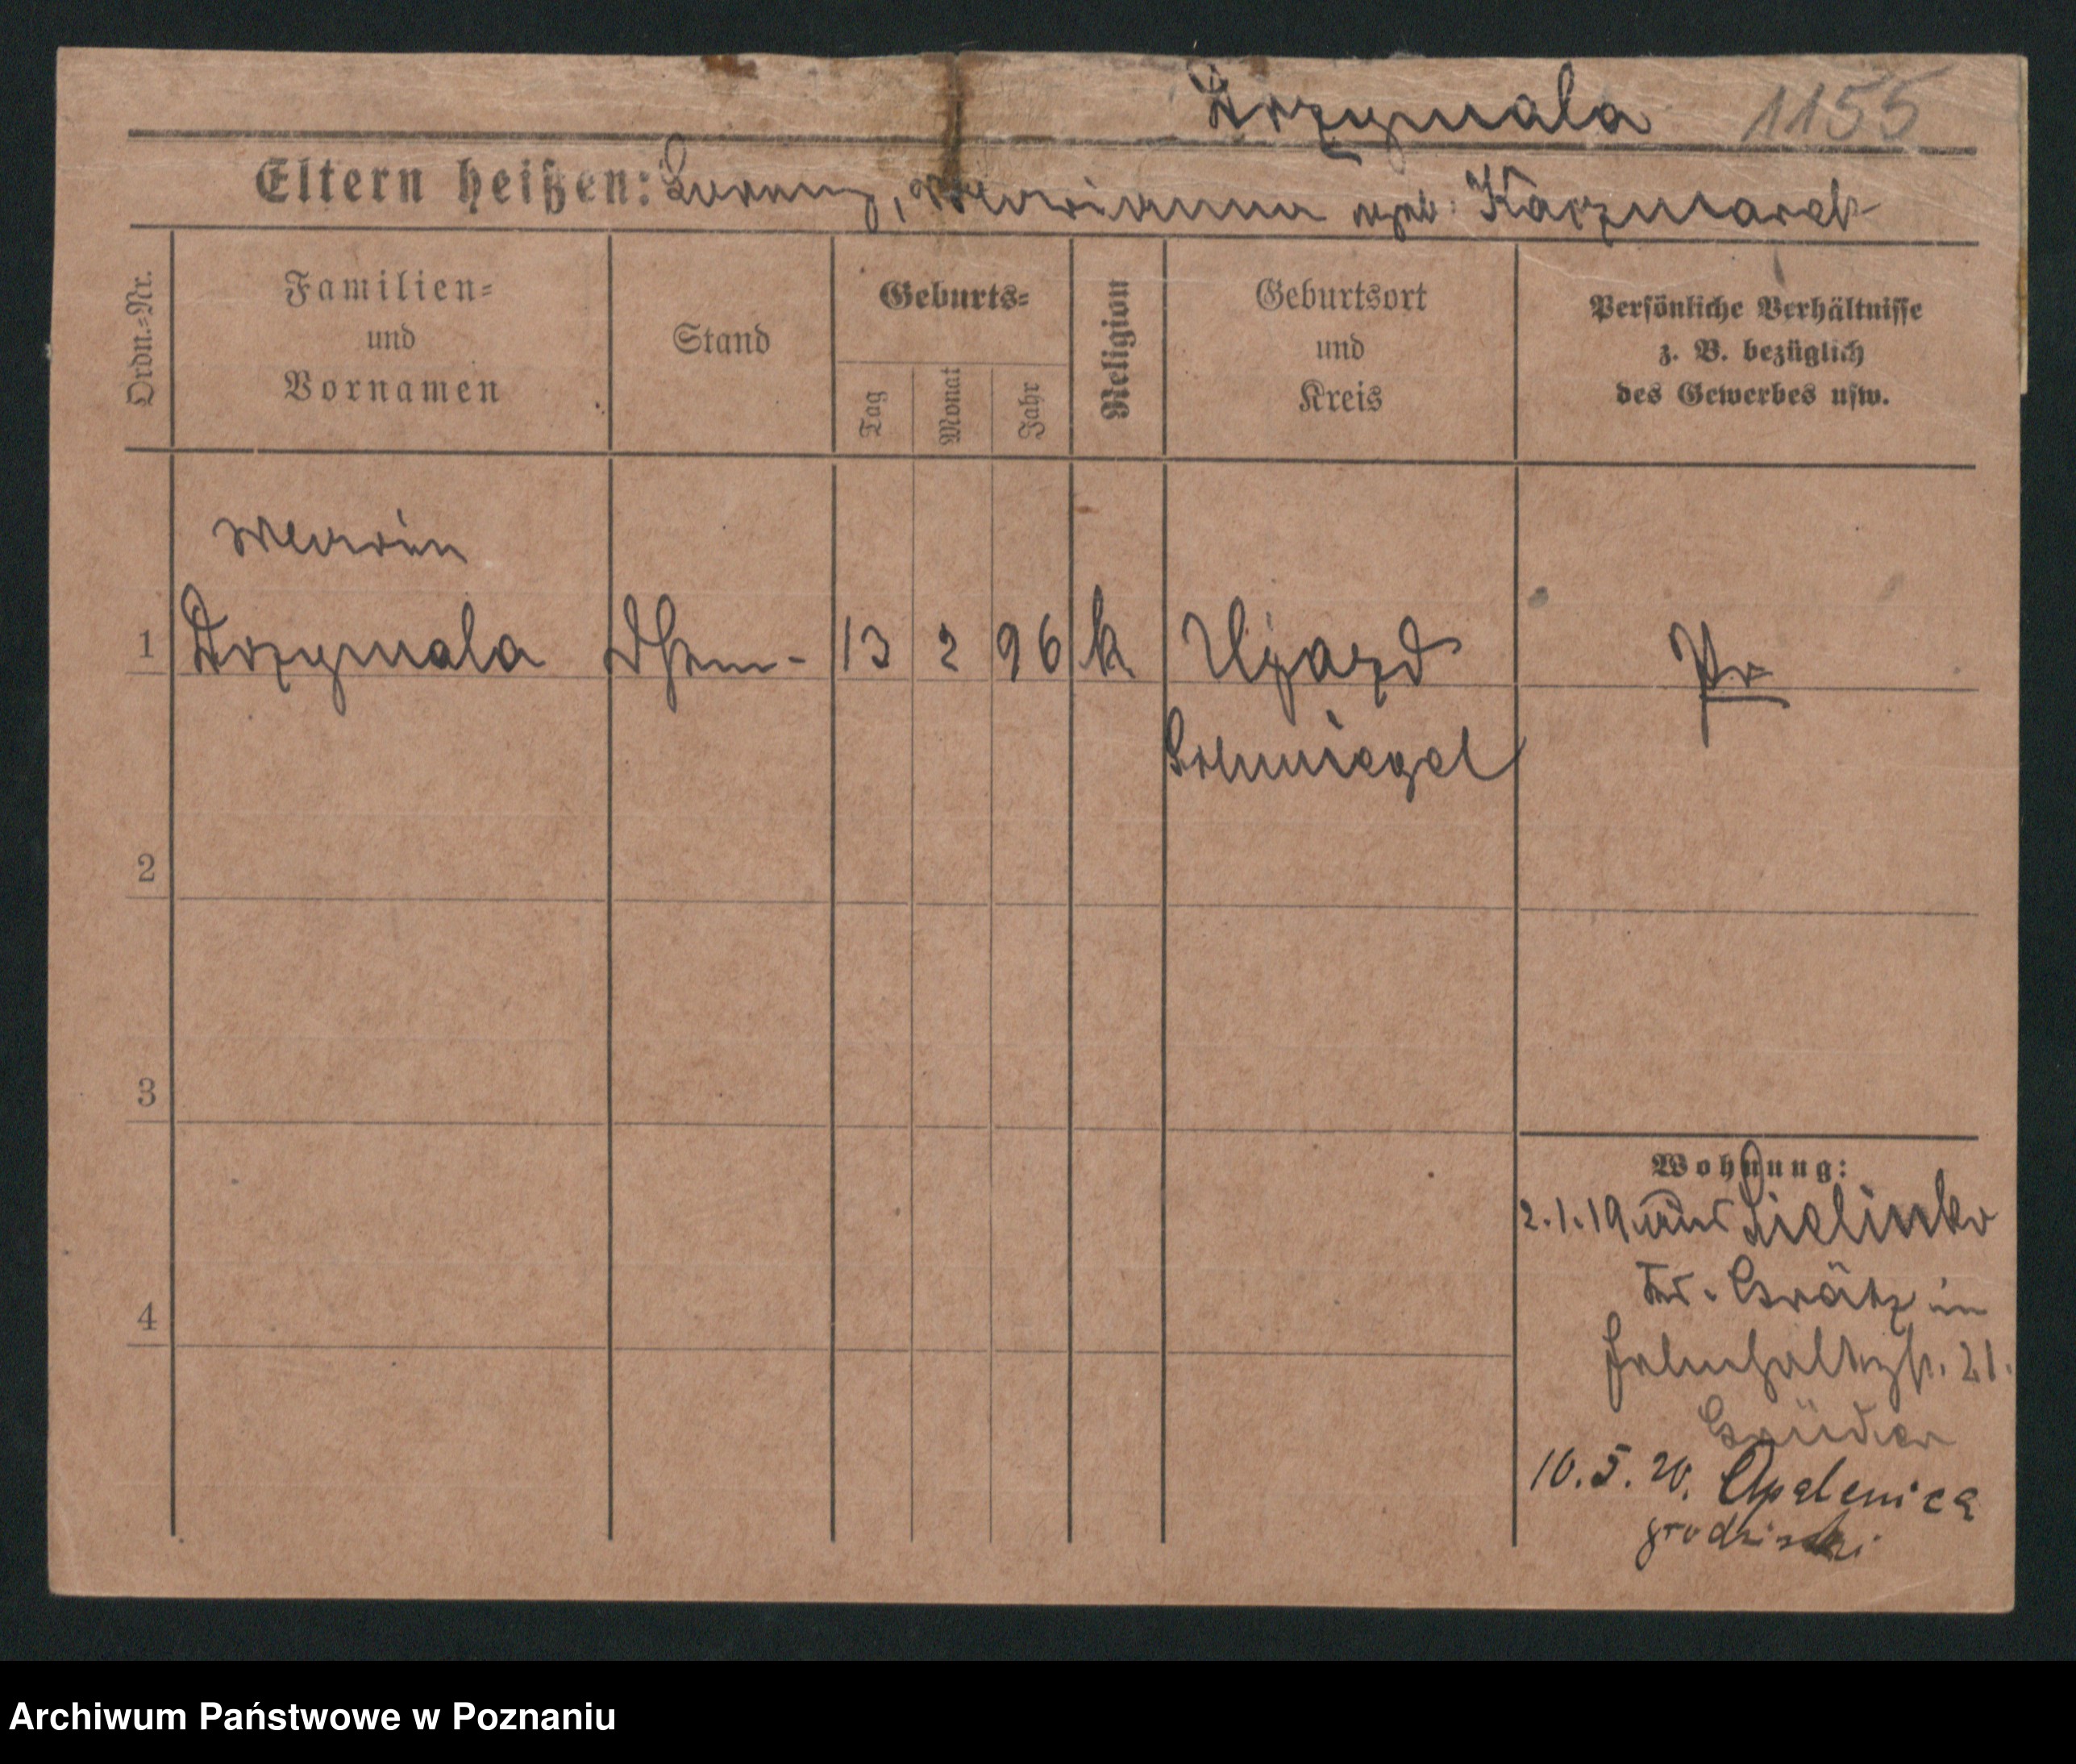 Drzymala 1155
Eltern heißen: Lorenz, Marianna geb. Kaczmarek
Ordn.=Nr.
Familien=
und
Vornamen
Stand
Geburts=
Tag
Monat
Jahr
Religion
Geburtsort
und
Kreis
Persönliche Verhältnisse
z. B. bezüglich
des Gewerbes usw.
Marie
1 Drzymala 13 2 96 k Ujazd Pr
Schmiegel
2
3
4
Wohnung:
2.1.19 aus Zielinko
Kr. Grätz in
21.
Grüder
10.5.20. Opalenica
grodziski
Archiwum Państwowe w Poznaniu